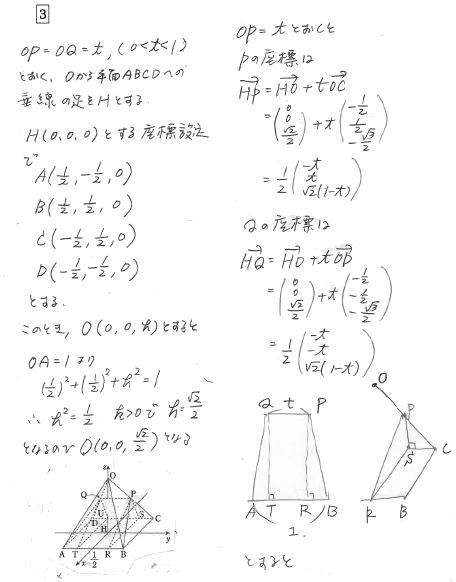 3
OP = OQ = t, (0<t<1)
とおく、Oから平面ABCDへの
垂線の足をHとする.
H(0, 0, 0)とする座標設定
で
A(1/2, -1/2, 0)
B(1/2, 1/2, 0)
C(-1/2, 1/2, 0)
D(-1/2, -1/2, 0)
とする.
このとき, O(0, 0, h)とすると
OA=1より
(1/2)²+(1/2)²+h²=1
∴ h²=1/2 h>0で h=√2/2
となるので O(0, 0, √2/2)となる
O
Q P
U S
D C
H
A T R B y
x 1/2
OP = t とおくと
Pの座標は
HP→ = HO→ + tOC→
= (0 0 √2/2) + t(-1/2 1/2 -√2/2)
= 1/2(-t t √2(1-t))
Qの座標は
HQ→ = HO→ + tOD→
= (0 0 √2/2) + t(-1/2 -1/2 -√2/2)
= 1/2(-t -t √2(1-t))
Q t P
A T R B
1.
O
P
S C
R B
とすると